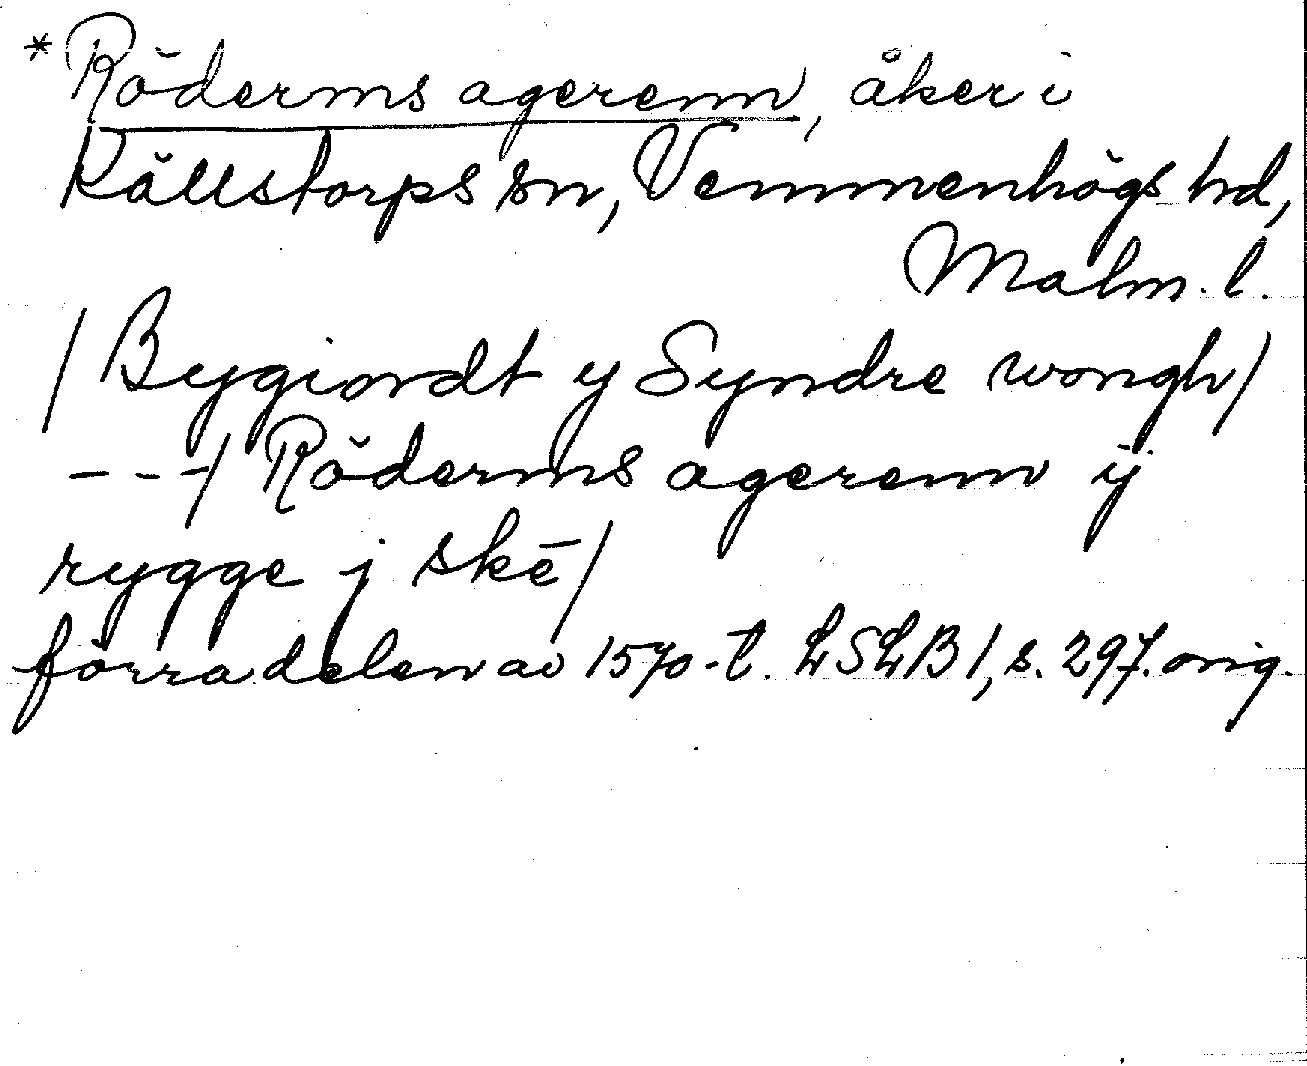 * Röderms agerenn, åker i
Källstorps sn, Vemmenhögs hd,
Malm. l.
/ Bygiordt y Syndre wongh /
- - - / Röderms agerenn ij
rygge j skē /
förra delen av 1570-t. LSLB 1, s. 297. orig.